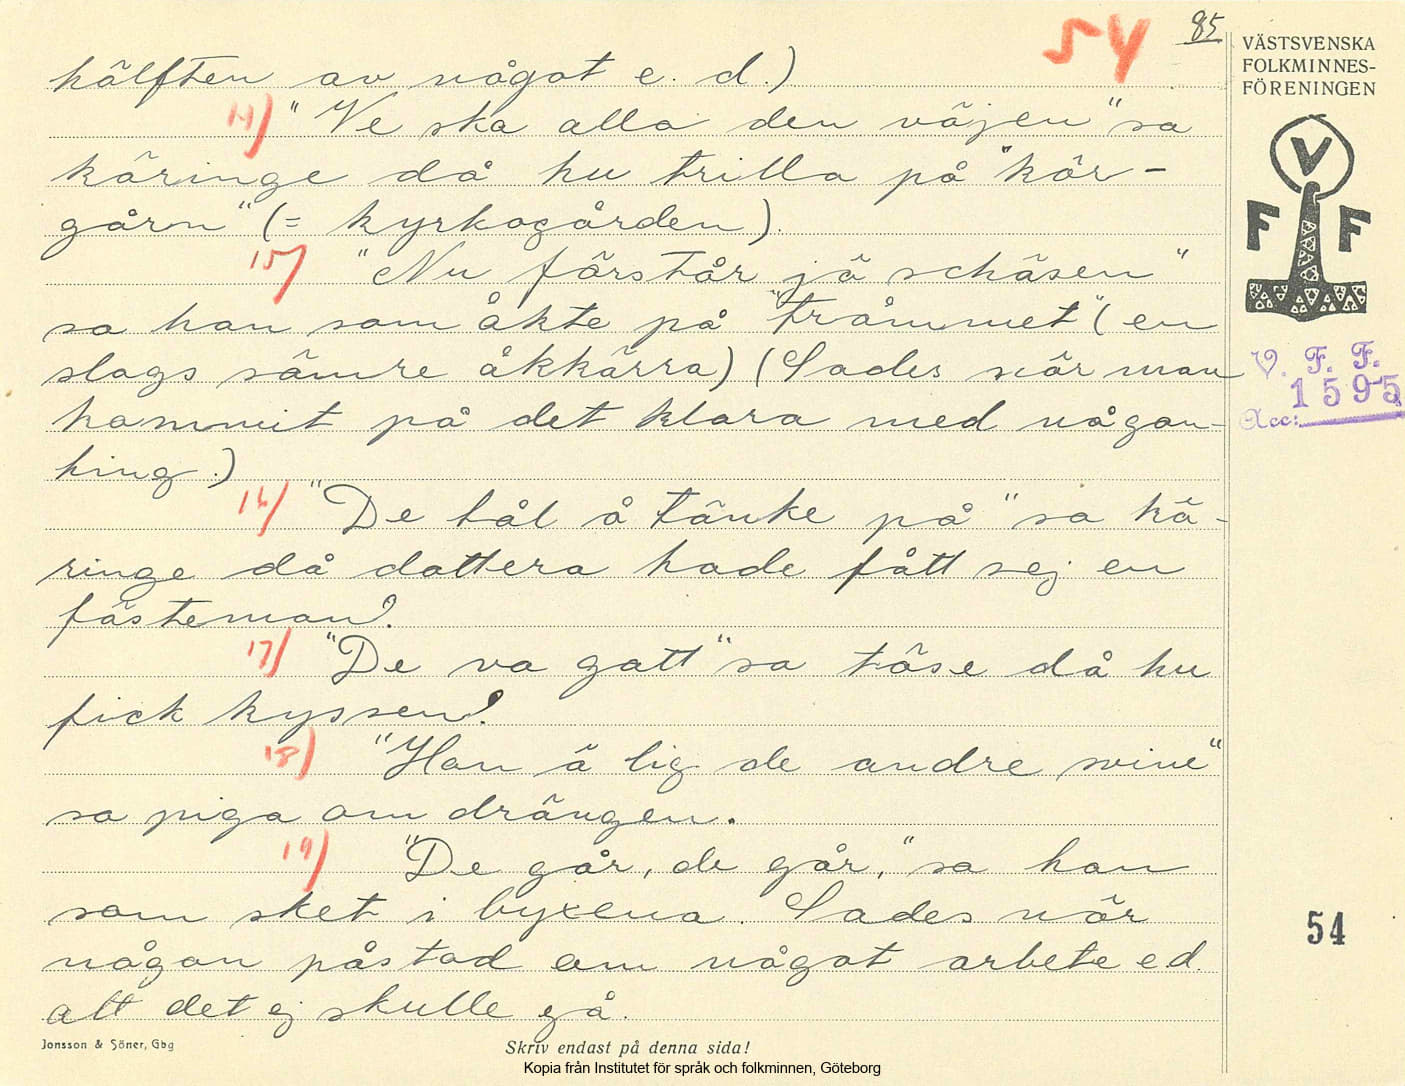 54 85
VÄSTSVENSKA
FOLKMINNES-
FÖRENINGEN
V
F F
V. F. F.
1595
Acc:
54
hälften av något e. d.)
14) "Ve ska alla den väjen" sa
käringe då hu trilla på "kör-
gårn" (= kyrkogården).
15) "Nu förstår jä schäsen"
sa han som åkte på "tråmmet" (en
slags sämre åkkärra) (Sades när man
kommit på det klara med någon-
ting.)
16) "De tål å tänke på" sa kä-
ringe då dottera hade fått sej en
fästeman.
17) "De va gott" sa töse då hu
fick kyssen.
18) "Han ä lig de andre svine"
sa piga om drängen.
19) "De går, de går," sa han
som sket i byxena. Sades när
någon påstod om något arbete e d.
att det ej skulle gå.
Jonsson & Söner, Gbg
Skriv endast på denna sida!
Kopia från Institutet för språk och folkminnen, Göteborg